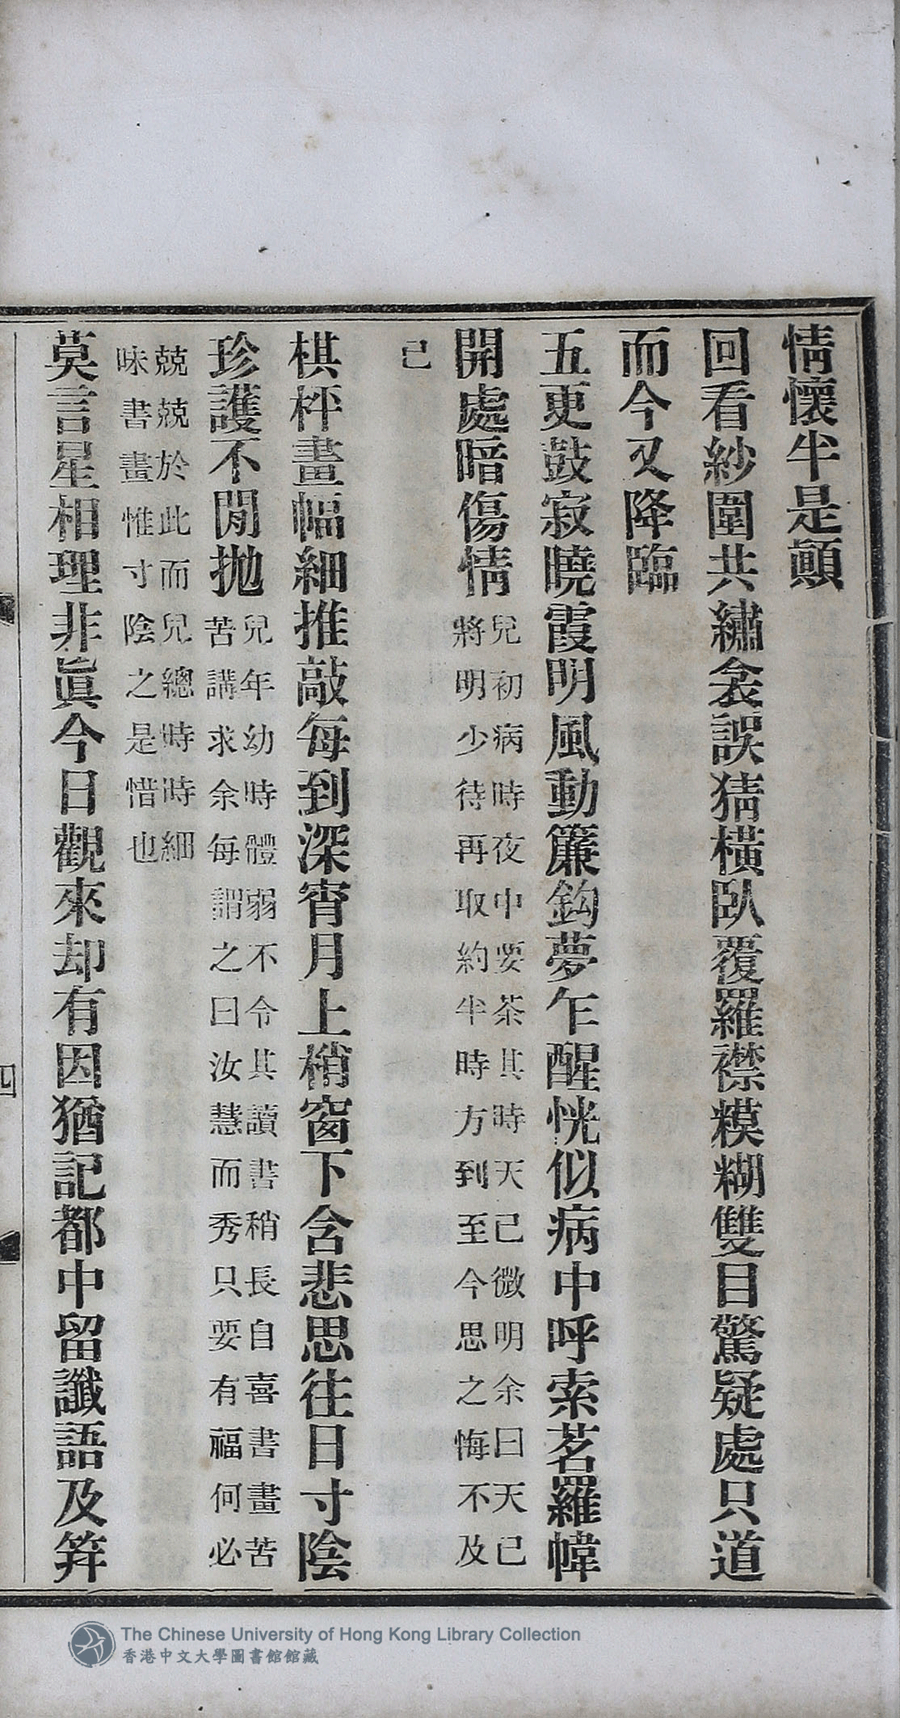 情懷半是顛
回看紗圍共繡衾誤猜橫臥覆羅襟糢糊雙目驚疑處只道
而今又降臨
五更鼓寂曉霞明風動簾鈎夢乍醒恍似病中呼索茗羅幃
開處暗傷情兒初病時夜中要茶其時天已微明余曰天已
將明少待再取約半時方到至今思之悔不及
已
棋枰畫幅細推敲每到深宵月上梢窗下含悲思往日寸陰
珍護不閒拋兒年幼時體弱不令其讀書稍長自喜書畫苦
苦講求余每謂之曰汝慧而秀只要有福何必
兢兢於此而兒總時時細
味書畫惟寸陰之是惜也
莫言星相理非眞今日觀來却有因猶記都中留讖語及筓
四
The Chinese University of Hong Kong Library Collection
香港中文大學圖書館館藏